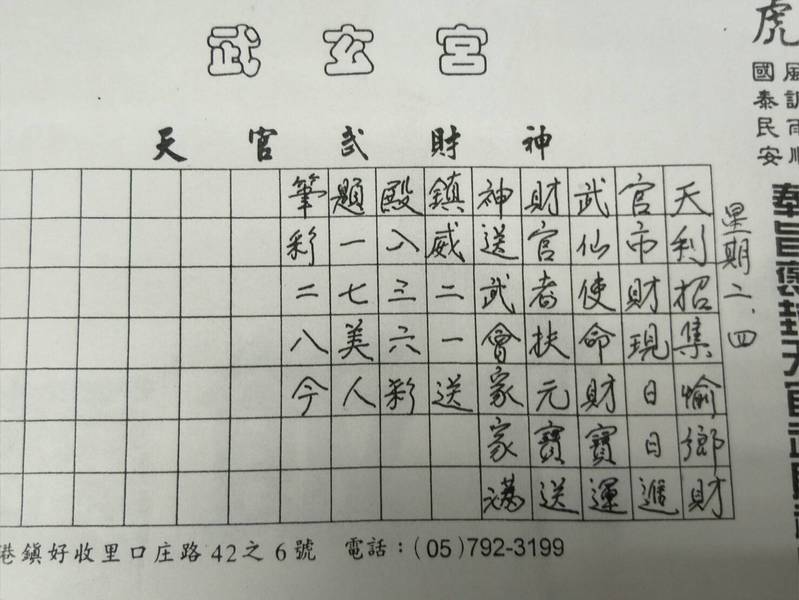 武玄宮
天官武財神
天利招集愉鄉財
官市財現日日進
武仙使命財寶運
財官者扶元寶送
神送武會家家滿
鎮威二一送
殿入三六彩
題一七美人
筆彩二八今
星期二、四
虎
風調雨順
國泰民安
港鎮好收里口庄路42之6號 電話:(05)792-3199